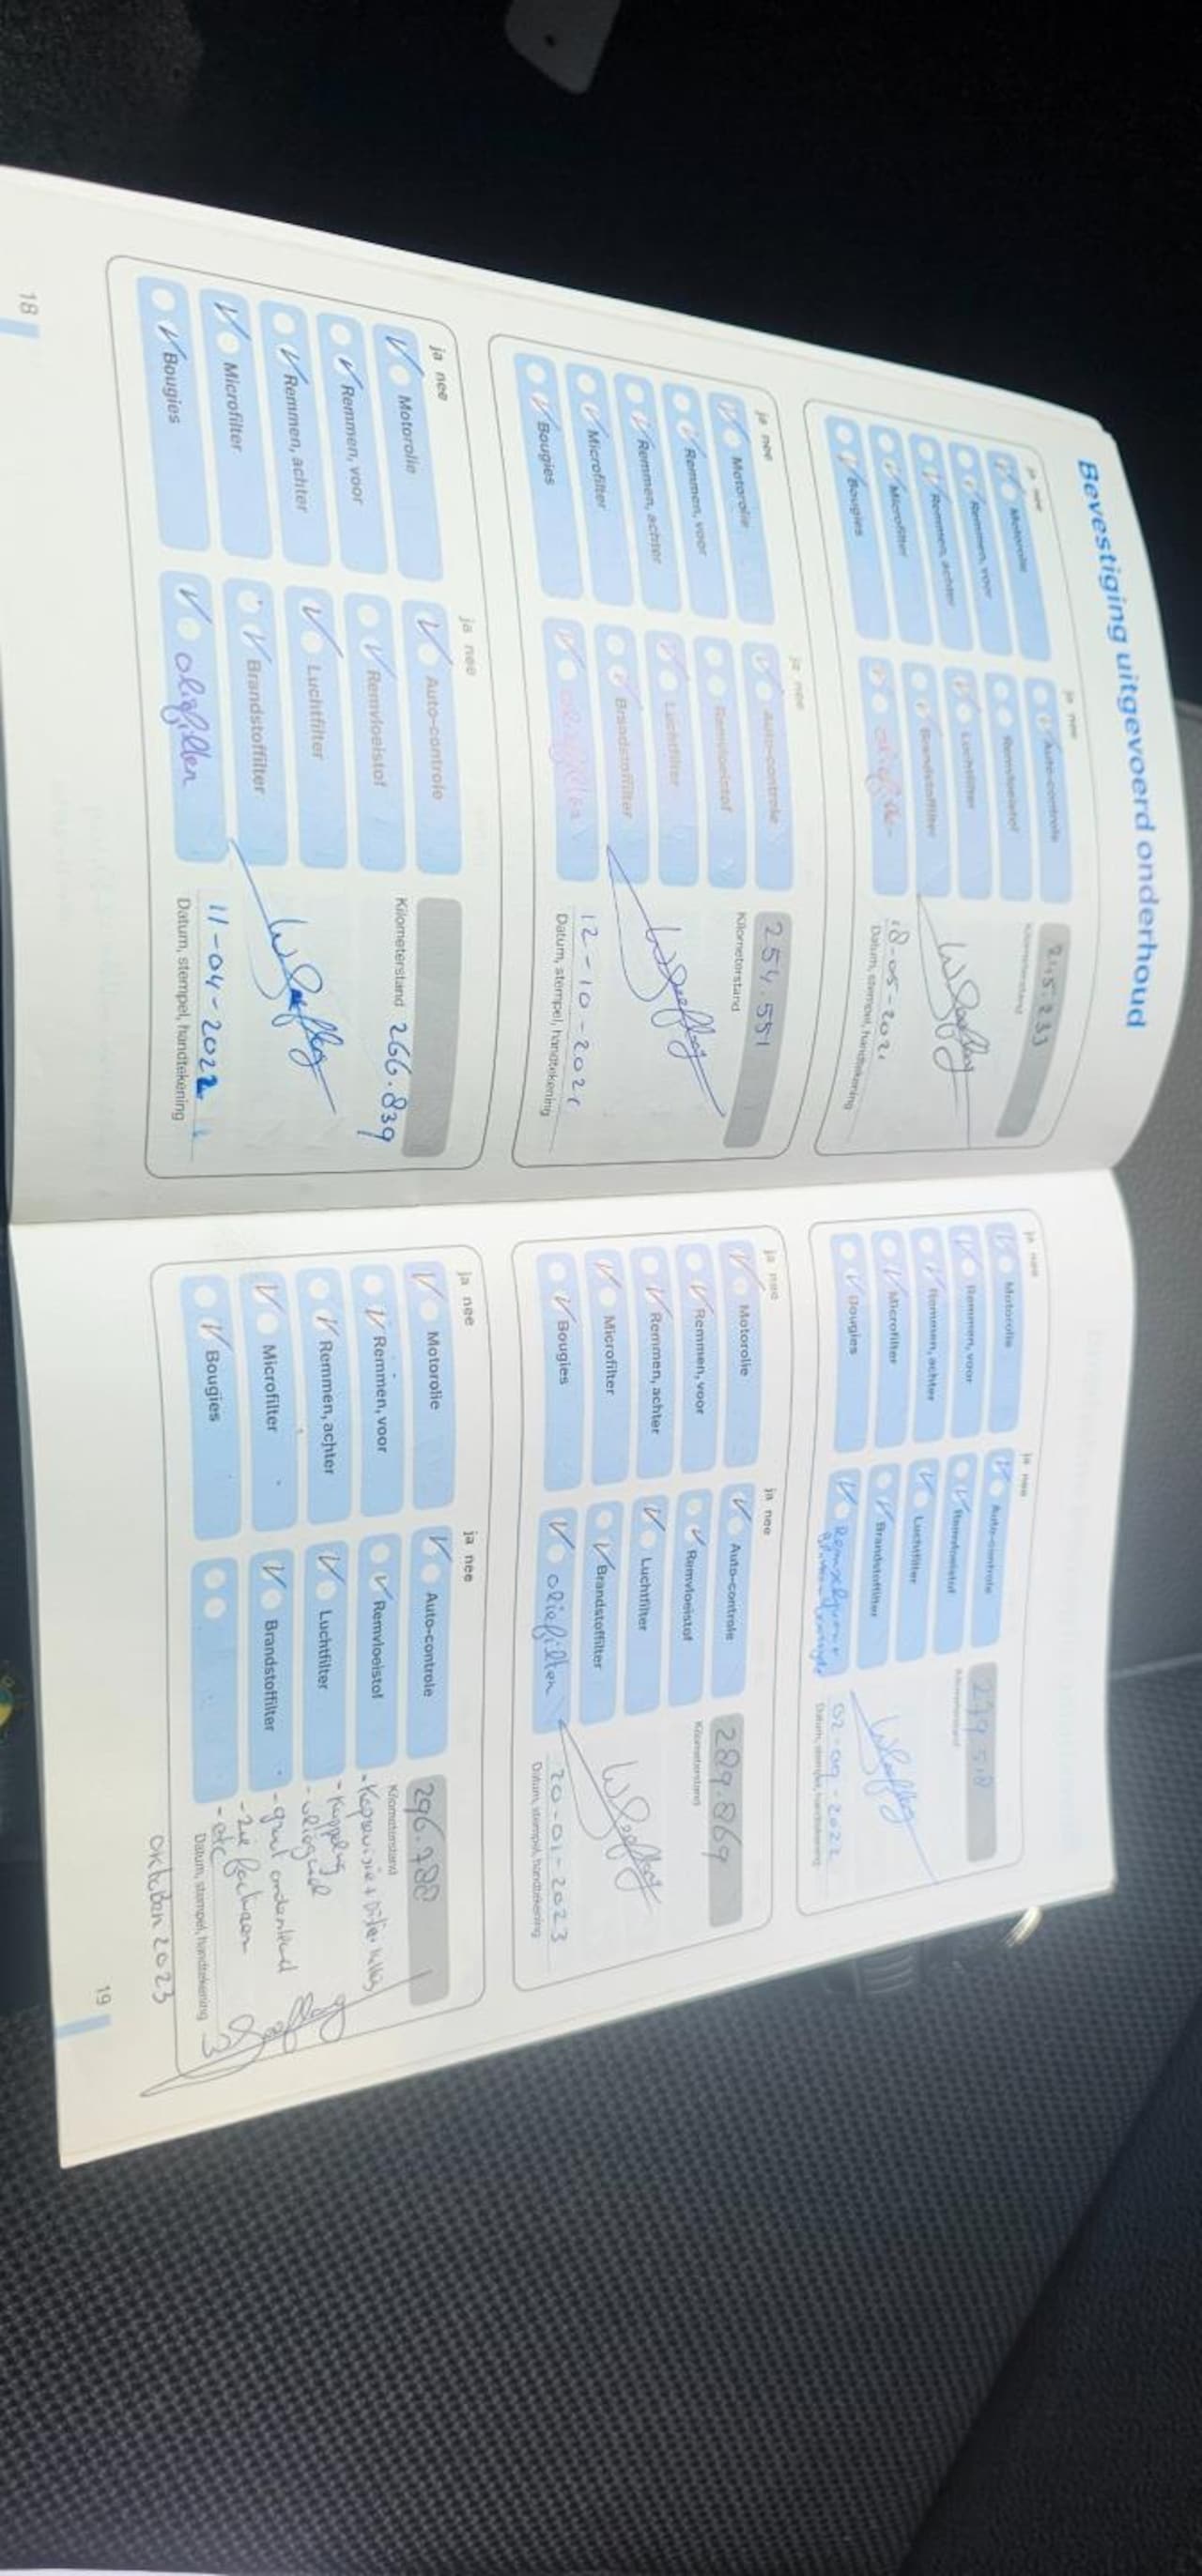 Bevestiging uitgevoerd onderhoud
ja nee
Motorolie
Remmen, voor
Remmen, achter
Microfilter
Bougies
ja nee
Auto-controle
Remvloeistof
Luchtfilter
Brandstoffilter
245.233
Kilometerstand
18-05-2021
Datum, stempel, handtekening
ja nee
Motorolie
Remmen, voor
Remmen, achter
Microfilter
Bougies
ja nee
Auto-controle
Remvloeistof
Luchtfilter
Brandstoffilter
oliefilter
254.551
Kilometerstand
12-10-2021
Datum, stempel, handtekening
ja nee
Motorolie
Remmen, voor
Remmen, achter
Microfilter
Bougies
ja nee
Auto-controle
Remvloeistof
Luchtfilter
Brandstoffilter
oliefilter
Kilometerstand 266.839
11-04-2022
Datum, stempel, handtekening
18
ja nee
Motorolie
Remmen, voor
Remmen, achter
Microfilter
Bougies
ja nee
Auto-controle
Remvloeistof
Luchtfilter
Brandstoffilter
Kilometerstand
02-09-2022
Datum, stempel, handtekening
ja nee
Motorolie
Remmen, voor
Remmen, achter
Microfilter
Bougies
ja nee
Auto-controle
Remvloeistof
Luchtfilter
Brandstoffilter
oliefilter
289.869
Kilometerstand
20-01-2023
Datum, stempel, handtekening
ja nee
Motorolie
Remmen, voor
Remmen, achter
Microfilter
Bougies
ja nee
Auto-controle
Remvloeistof
Luchtfilter
Brandstoffilter
296.788
Kilometerstand
- Koppeling
- vliegwiel
- groot onderhoud
- zie facturen
- etc
Datum, stempel, handtekening
oktober 2023
19